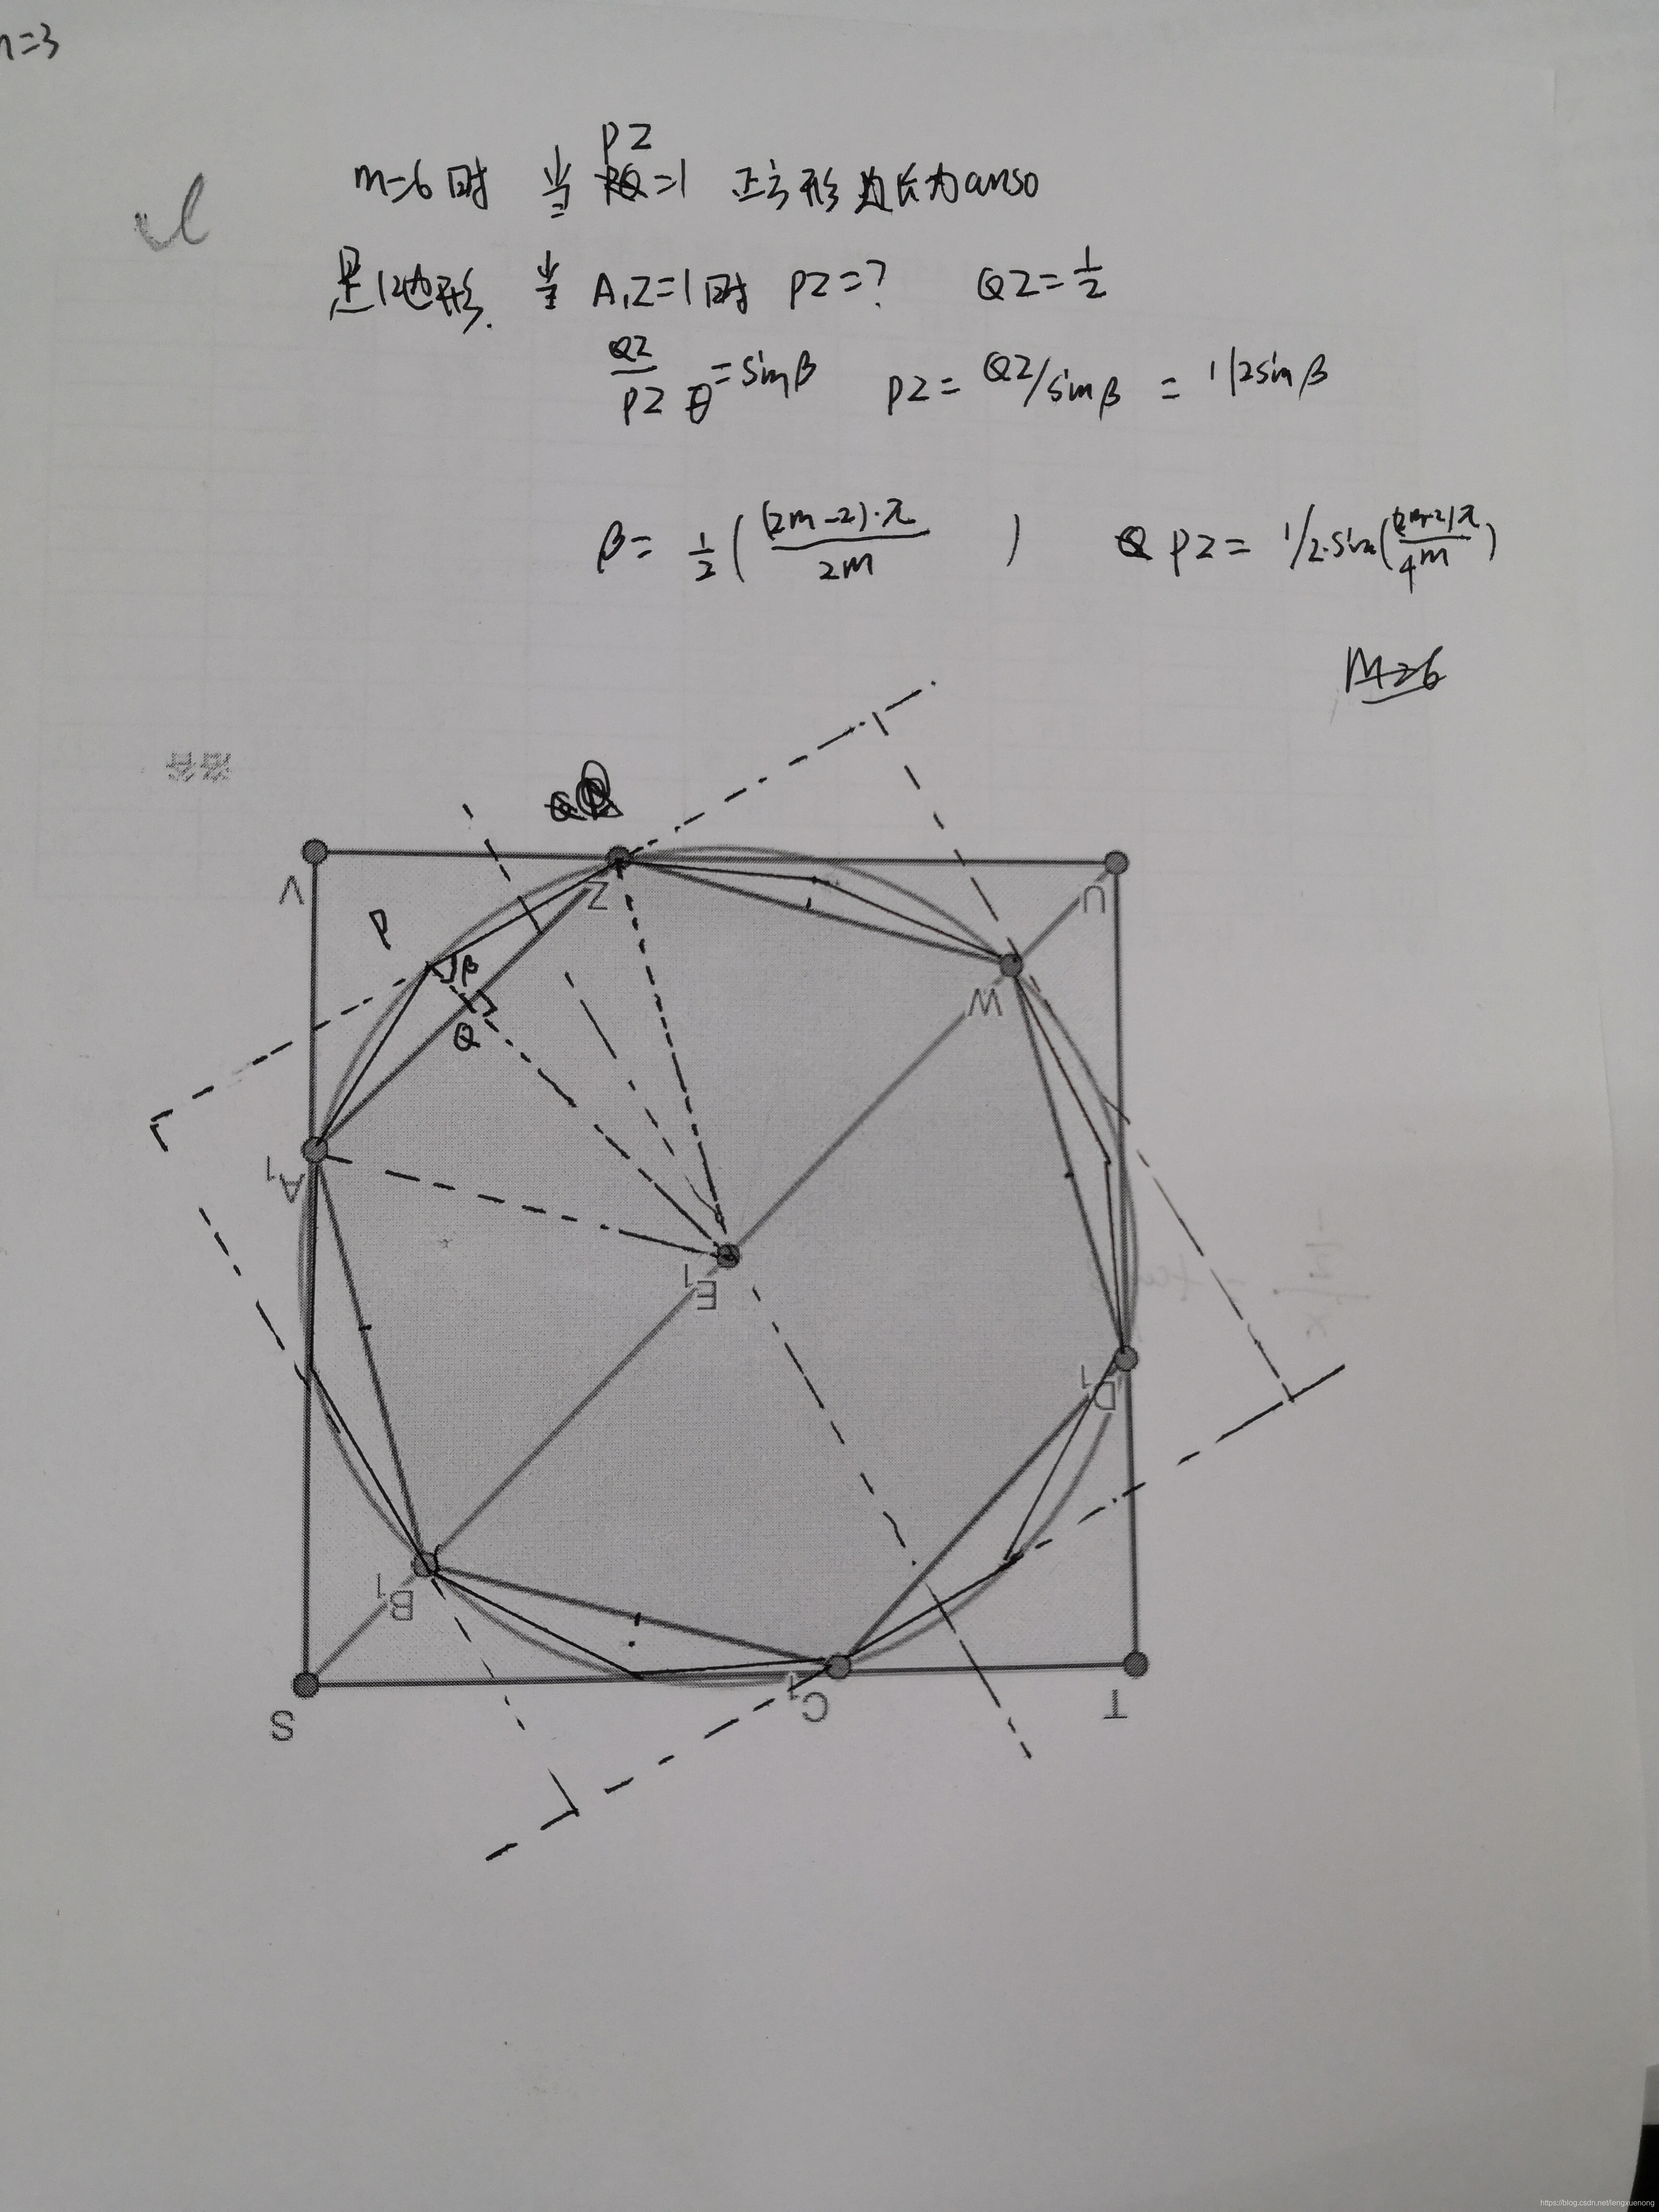 n=3
m=6时 当 PZ=1 正方形边长为anso
是12边形. 当 A₁Z=1时 PZ=? QZ=1/2
QZ/PZ =sinβ PZ= QZ/sinβ = 1/2sinβ
β= 1/2((2m-2)·π/2m) PZ= 1/2·sin((2m-2)π/4m)
M=6
答答
V
Z
U
P
β
Q
W
A₁
E₁
D₁
B₁
S
C₁
T
https://blog.csdn.net/fengxuenong